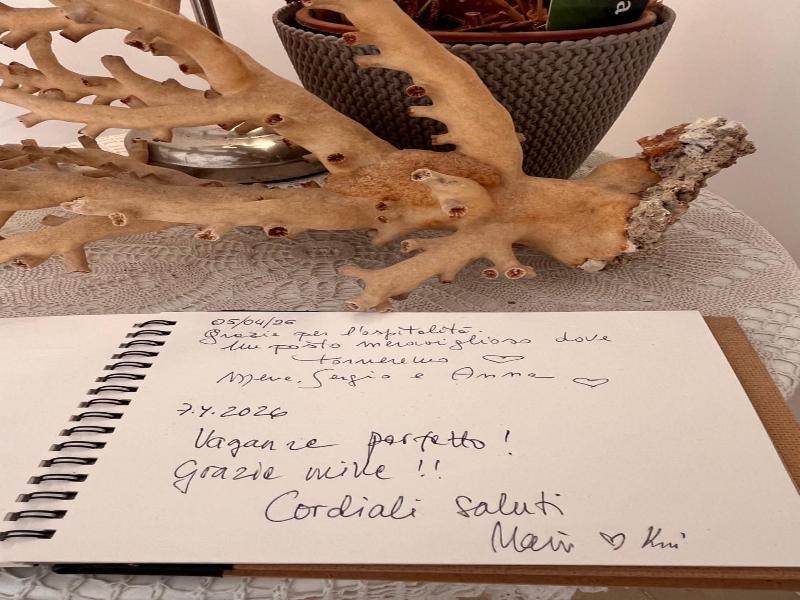 a
05/04/26
Grazie per l'ospitalità.
Un posto meraviglioso dove
torneremo
Sergio e Anna
7.4.2026
Vaganze perfetto!
Grazie mille !!
Cordiali saluti